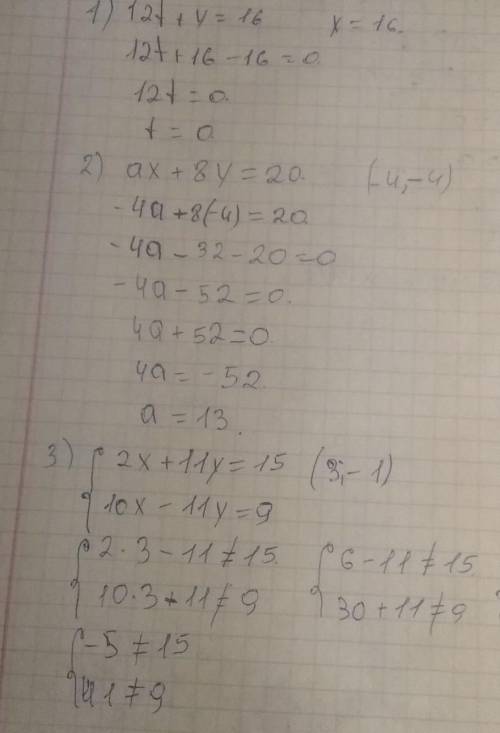 1) 12t + y = 16 x = 16.
12t + 16 - 16 = 0
12t = 0.
t = 0
2) ax + 8y = 20. (-4, -4)
-4a + 8(-4) = 20
-4a - 32 - 20 = 0
-4a - 52 = 0.
4a + 52 = 0.
4a = -52
a = 13.
3) { 2x + 11y = 15 (3; -1)
10x - 11y = 9
{ 2·3 - 11 ≠ 15 { 6 - 11 ≠ 15
10·3 + 11 ≠ 9 30 + 11 ≠ 9
{ -5 ≠ 15
41 ≠ 9